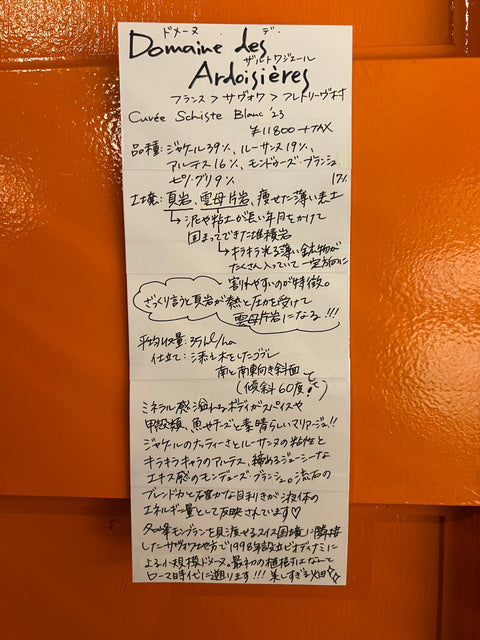 ドメーヌ デ
Domaine des
ザルドワジエール
Ardoisières
フランス > サヴォワ > フレトリーヴ村
Cuvée Schiste Blanc '23
¥11800 +TAX
品種:ジャケール39%、ルーサンヌ19%、
アルテス16%、モンドゥーズ・ブランシュ
17%
ピノ・グリ9%
土壌:頁岩、雲母片岩、痩せた薄い表土
↳泥や粘土が長い年月をかけて
固まってできた堆積岩
↳キラキラ光る薄い鉱物が
たくさん入っていて一定方向に
割れやすいのが特徴。
ざっくり言うと頁岩が熱と圧力を受けて
雲母片岩になる!!!
平均収量:35hl/ha
仕立て:添え木をしたゴブレ
南と南東向き斜面
(傾斜60度!)
ミネラル感溢れるボディがスパイスや
甲殻類、魚やチーズと素晴らしいマリアージュ!!
ジャケールのナッティーさとルーサンヌの粘性と
キラキラキャラのアルテス、締めるジューシーな
エキス感のモンデューズ・ブランシュ。流石の
ブレンド力と確かな目利きが液体の
エネルギー量として反映されています♡
モンブランを見渡せるスイス国境に隣接
したサヴォワ地方で1998年設立ビオディナミに
よる小規模ドメーヌ。最初の植樹はなんと
ローマ時代に遡ります!!!美しすぎる畑☆☆